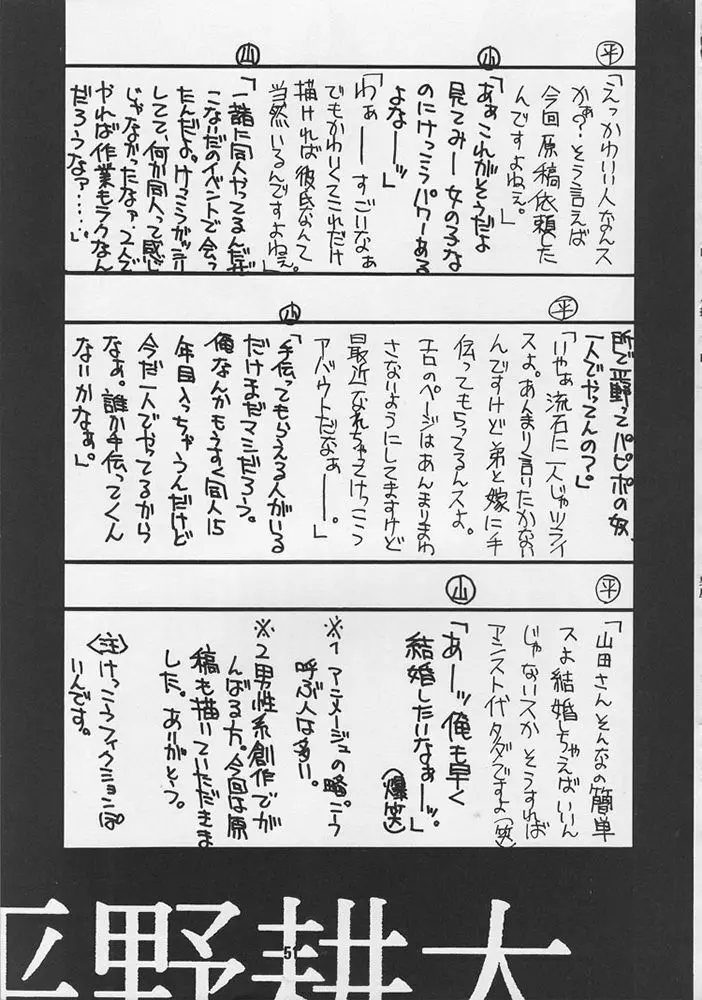 平
「えっかわいい人なんス
かぁ?そう言えば
今回原稿依頼した
んですよねぇ。」
山
「あぁこれがそうだよ
見てみー女の子な
のにけっこうパワーある
よなーッ」
「わぁーーすごいなぁ
でもかわいくてこれだけ
描ければ彼氏なんて
当然いるんですよねぇ。」
山
「一諸に同人やってるんだぜ
こないだのイベントで会っ
たんだよ。けっこうガッシリ
してて、何か同人って感じ
じゃなかったなァ。2人で
やれば作業もラクなん
だろうなァ……」
所で平野ってパピポの奴、
一人でやってんの?」
平
「いやぁ流石に一人じゃツライ
スよ。あんまり言いたかない
んですけど弟と嫁に手
伝ってもらってるんスよ。
エロのページはあんまりまわ
さないようにしてますけど
最近なれちゃってけっこう
アバウトだなぁー。」
山
「手伝ってもらえる人がいる
だけまだマシだろう。
俺なんかもうすぐ同人15
年目入っちゃうんだけど
今だ一人でやってるから
なぁ。誰か手伝ってくん
ないかなぁ。」
平
「山田さんそんなの簡単
スよ結婚しちゃえばいいん
じゃないスか そうすれば
アシスト代タダですよ(笑)
山
「あーッ俺も早く
結婚したいなぁーッ。」
(爆笑)
※1 アニメージュの略。こう
呼ぶ人は多い。
※2 男性系創作でが
んばる方。今回は原
稿も描いていただきま
した。ありがとう。
〈注〉けっこうフィクションぽ
いんです。
平野耕太
51